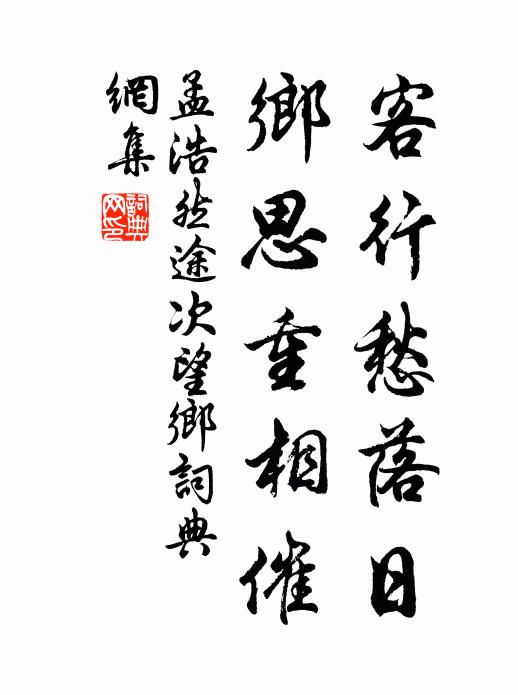 客行愁落日
鄉思重相催
孟浩然途次望鄉詞典
網集
詞典网印